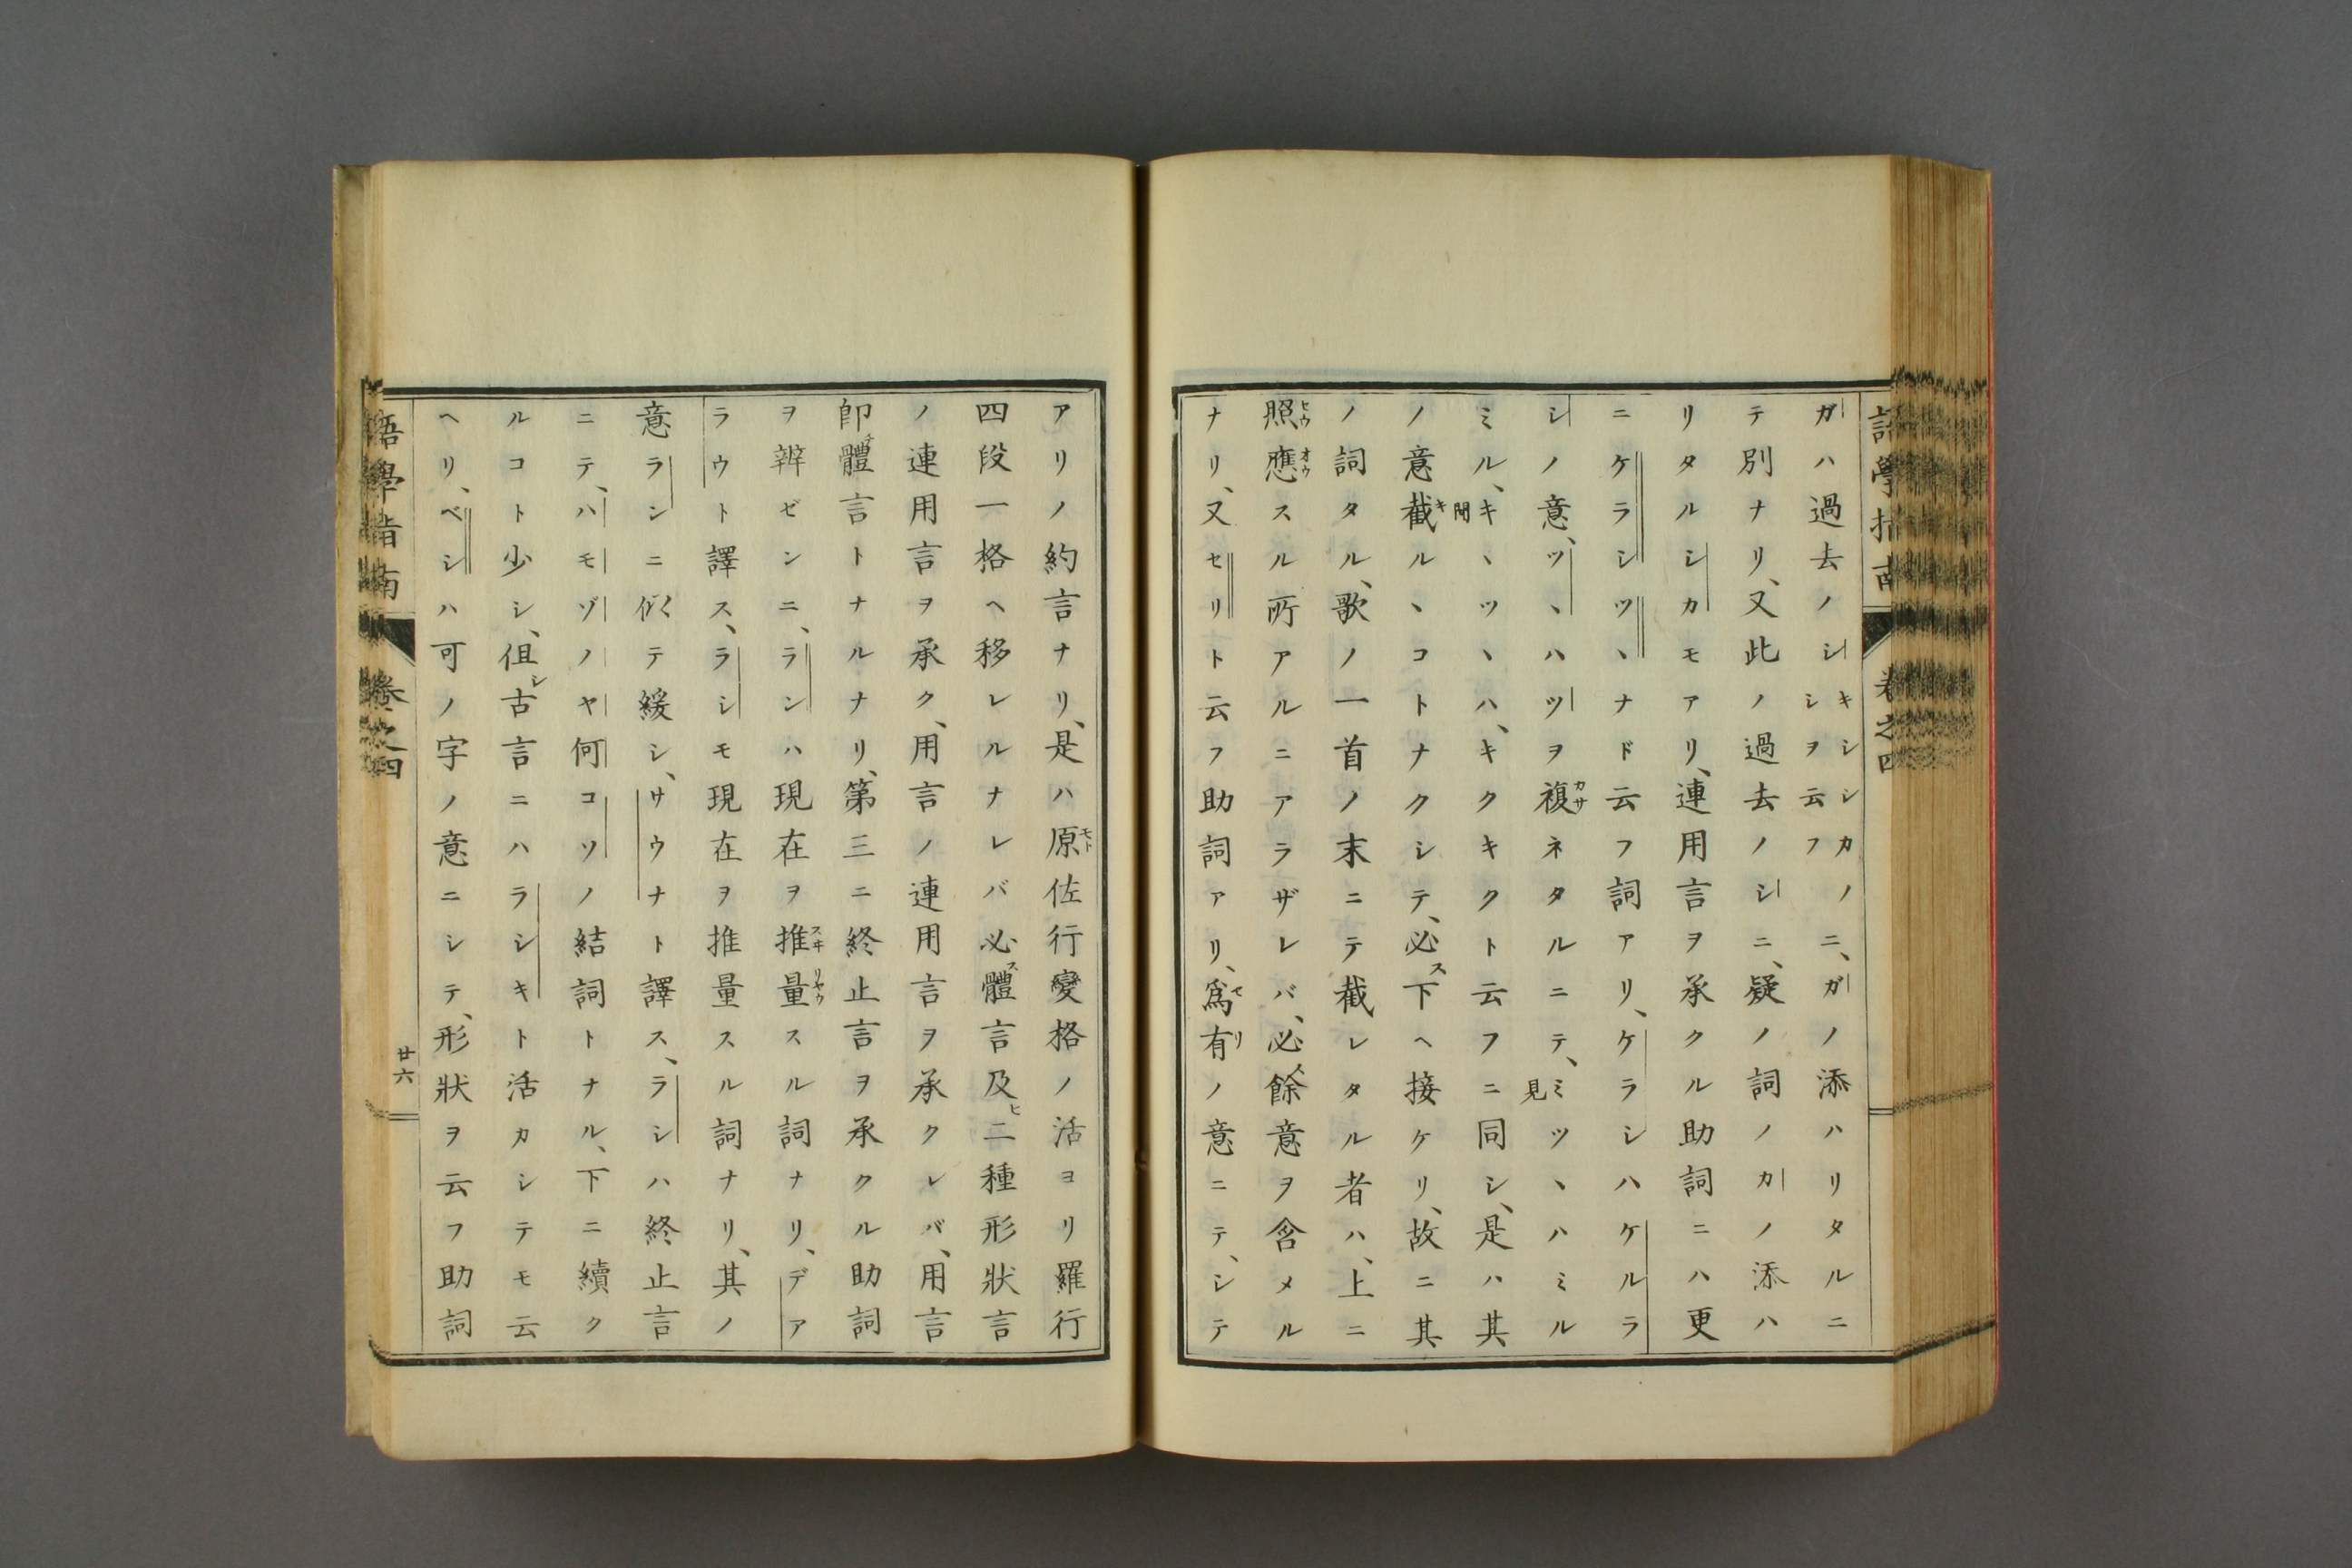 語學指南
卷之四
ガハ過去ノシキシシカノシヲ云フニ、ガノ添ハリタルニ
テ別ナリ、又此ノ過去ノシニ、疑ノ詞ノカノ添ハ
リタルシカモアリ、連用言ヲ承クル助詞ニハ更
ニケラシツヽナド云フ詞アリ、ケラシハケルラ
シノ意、ツヽハツヲ複カサネタルニテ、ミ見ツヽハミル
ミル、キ聞キヽツヽハ、キクキクト云フニ同シ、是ハ其
ノ意截キルヽコトナクシテ、必ス下ヘ接ケリ、故ニ其
ノ詞タル、歌ノ一首ノ末ニテ截レタル者ハ、上ニ
照セウ應オウスル所アルニアラザレバ、必ス餘意ヲ含メル
ナリ、又セリト云フ助詞アリ、爲セ有リノ意ニテ、シテ
アリノ約言ナリ、是ハ原モト佐行變格ノ活ヨリ羅行
四段一格ヘ移レルナレバ必ス體言及ヒ二種形狀言
ノ連用言ヲ承ク、用言ノ連用言ヲ承クレバ、用言
卽チ體言トナルナリ、第三ニ終止言ヲ承クル助詞
ヲ辨ゼンニ、ランハ現在ヲ推スヰ量リヤウスル詞ナリ、デア
ラウト譯ス、ラシモ現在ヲ推量スル詞ナリ、其ノ
意ランニ似テ緩シ、サウナト譯ス、ラシハ終止言
ニテ、ハモゾノヤ何コソノ結詞トナル、下ニ續ク
ルコト少シ、但シ古言ニハラシキト活カシテモ云
ヘリ、ベシハ可ノ字ノ意ニシテ、形狀ヲ云フ助詞
語學指南
卷之四
廿六